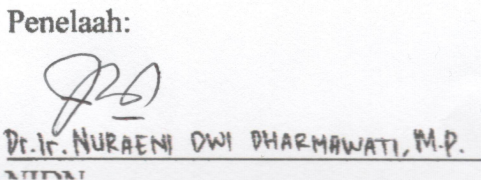 Penelaah:
Dr. Ir. NURAENI DWI DHARMAWATI, M.P.
NIDN